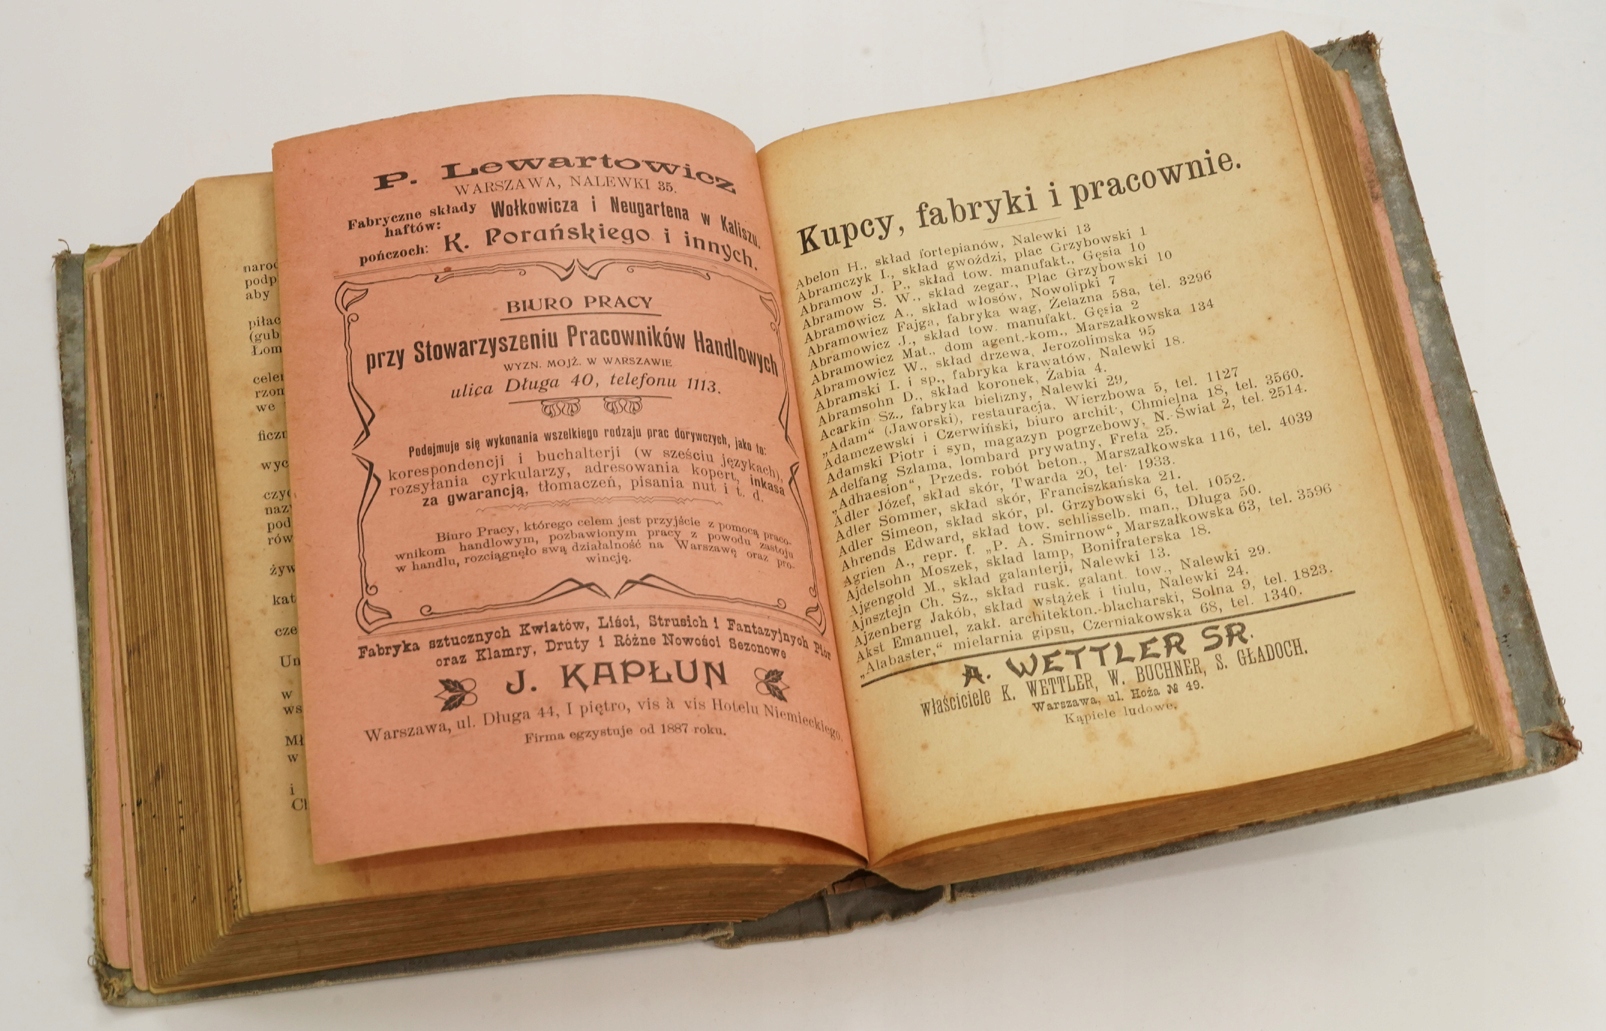 P. Lewartowicz
WARSZAWA, NALEWKI 35.
Fabryczne składy haftów: Wołkowicza i Neugartena w Kaliszu.
pończoch: K. Porańskiego i innych.
BIURO PRACY
przy Stowarzyszeniu Pracowników Handlowych
WYZN. MOJŻ. W WARSZAWIE
ulica Długa 40, telefonu 1113.
Podejmuje się wykonania wszelkiego rodzaju prac dorywczych, jako to:
korespondencji i buchalterji (w sześciu językach),
rozsyłania cyrkularzy, adresowania kopert, inkasa
za gwarancją, tłomaczeń, pisania nut i t. d.
Biuro Pracy, którego celem jest przyjście z pomocą praco-
wnikom handlowym, pozbawionym pracy z powodu zastoju
w handlu, rozciągnęło swą działalność na Warszawę oraz pro-
wincję.
Fabryka sztucznych Kwiatów, Liści, Strusich i Fantazyjnych Piór
oraz Klamry, Druty i Różne Nowości Sezonowe
J. KAPŁUN
Warszawa, ul. Długa 44, I piętro, vis à vis Hotelu Niemieckiego.
Firma egzystuje od 1887 roku.
Kupcy, fabryki i pracownie.
Abelon H., skład fortepianów, Nalewki 13
Abramczyk I., skład gwoździ, plac Grzybowski 1
Abramow J. P., skład tow. manufakt., Gęsia 10
Abramow S. W., skład zegar., Plac Grzybowski 10
Abramowicz A., skład włosów, Nowolipki 7
Abramowicz Fajga, fabryka wag, Żelazna 58a, tel. 3296
Abramowicz J., skład tow. manufakt. Gęsia 2
Abramowicz Mat., dom agent.-kom., Marszałkowska 134
Abramowicz W., skład drzewa, Jerozolimska 95
Abramski I. i sp., fabryka krawatów, Nalewki 18.
Abramsohn D., skład koronek, Żabia 4.
Acarkin Sz., fabryka bielizny, Nalewki 29,
„Adam“ (Jaworski), restauracja, Wierzbowa 5, tel. 1127
Adamczewski i Czerwiński, biuro archit., Chmielna 18, tel. 3560.
Adamski Piotr i syn, magazyn pogrzebowy, N.-Świat 2, tel. 2514.
Adelfang Szlama, lombard prywatny, Freta 25.
„Adhaesion“, Przeds. robót beton., Marszałkowska 116, tel. 4039
Adler Józef, skład skór, Twarda 20, tel. 1933.
Adler Sommer, skład skór, Franciszkańska 21.
Adler Simeon, skład skór, pl. Grzybowski 6, tel. 1052.
Ahrends Edward, skład tow. schlisselb. man., Długa 50.
Agrien A., repr. f. „P. A. Smirnow“, Marszałkowska 63, tel. 3596
Ajdelsohn Moszek, skład lamp, Bonifraterska 18.
Ajgengold M., skład galanterji, Nalewki 13.
Ajnsztejn Ch. Sz., skład rusk. galant. tow., Nalewki 29.
Ajzenberg Jakób, skład wstążek i tiulu, Nalewki 24.
Akst Emanuel, zakł. architekton.-blacharski, Solna 9, tel. 1823.
„Alabaster,“ mielarnia gipsu, Czerniakowska 68, tel. 1340.
A. WETTLER SR.
właściciele K. WETTLER, W. BUCHNER, S. GŁADOCH.
Warszawa, ul. Hoża № 49.
Kąpiele ludowe.